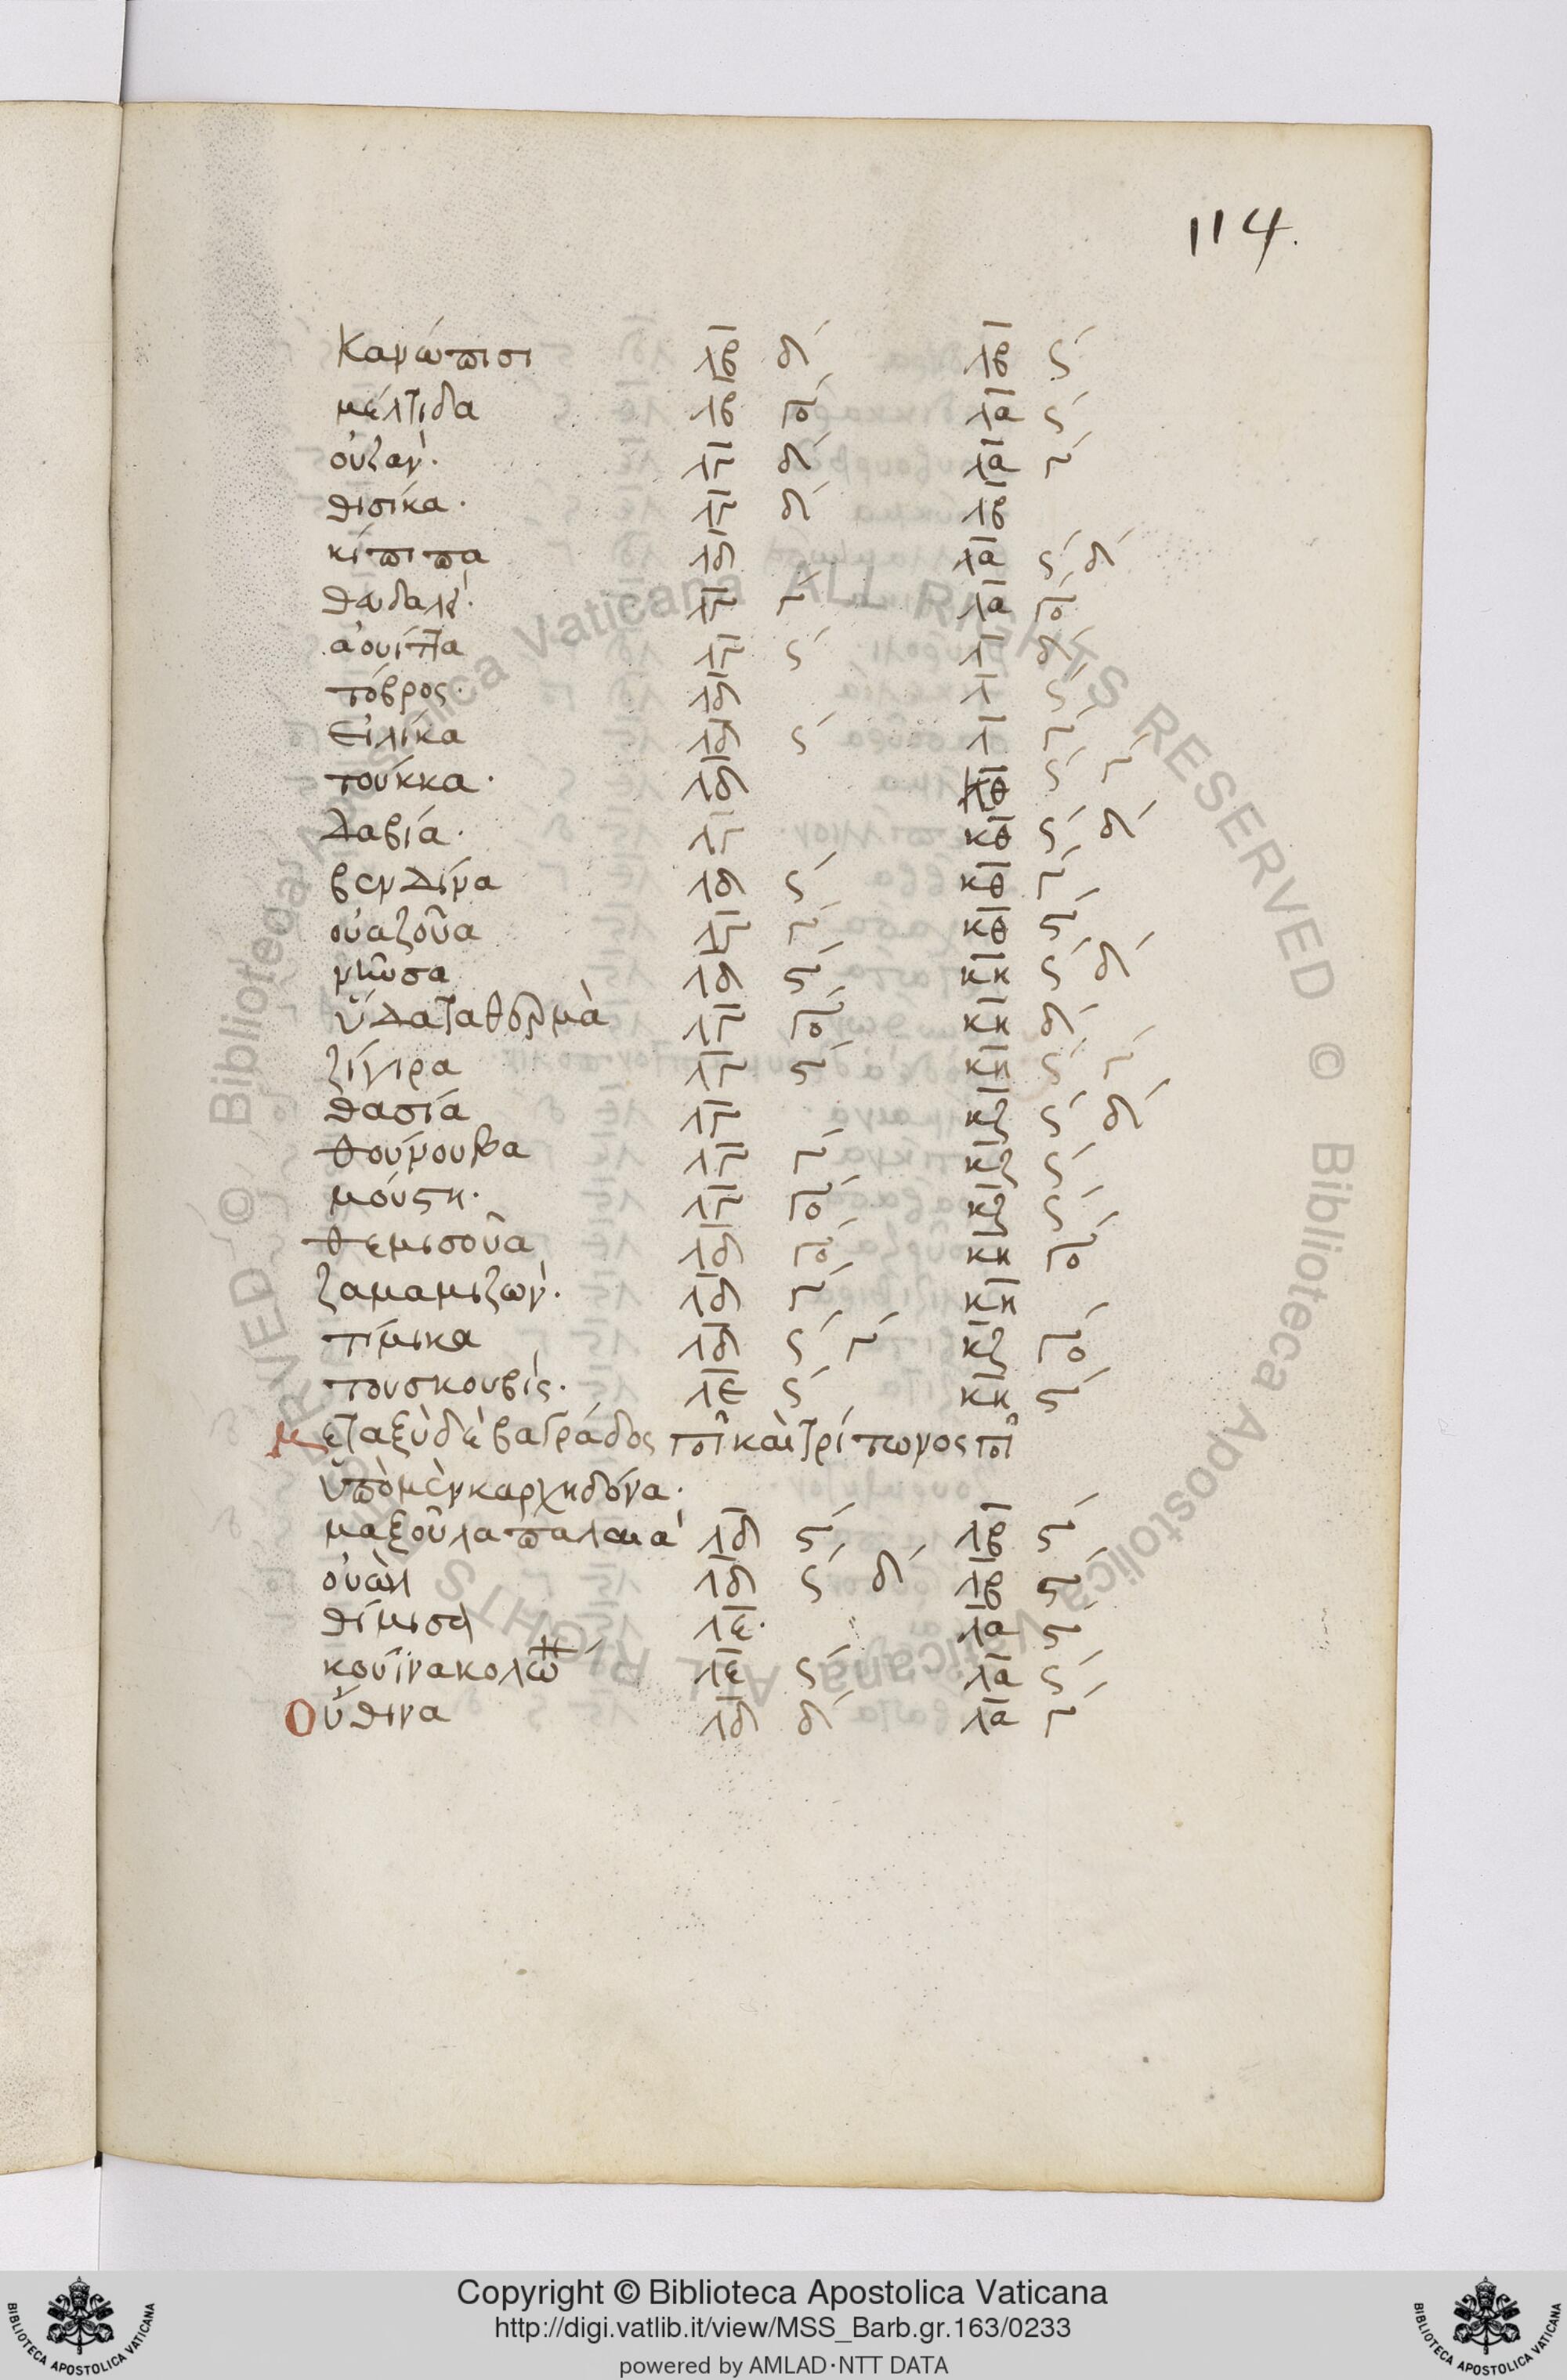 114.
Κανώπισι λβ δ´ λβ ς´
μέλτιδα λβ γο´ λα ς´
οὐζαν̀· λγ δ´ λα γ´
θισίκα· λγ δ´ λβ
κίπιπα λδ λα ς´ δ´
θευδαλὶ· λγ γ´ λα γο´
αουίττα λγ ς´ λ δ´
τόβρος· λδ λ ς´
εἰλίκα λδ ς´ λ γ´
τούκκα· λδ κθ ς´ γ´
Δαβία· λγ κθ ς´ δ´
βενδίνα λδ ς´ κθ γ´
οὐαζοῦα λγ γ´ κθ ϛ´
νῆυσα λδ ϛ´ κη ς´ δ´
ὕδαταθερμὰ λγ γο´ κη δ´
ζίγιρα λγ ϛ´ κη ς´ γ´
θασία λγ κζ ς´ δ´
θούνουβα λγ γ´ κζ ς´
μούστη· λγ γο´ κζ ς´
θεμισοῦα λδ γο´ κη γο´
ζαμαμιζων̀· λδ γ´ κη
τίμικα λδ ς´ γ´ κζ γο´
τουσκουβίς· λε ς´ κη ϛ´
μεταξὺ δὲ βαγράδος ποτ καὶ τρίτωνος ποτ
ὑπὸ μὲν καρχηδόνα·
μαξοῦλα παλαιὰ λδ ϛ´ λβ ϛ´
οὐὼλ λδ ς´ δ´ λβ ϛ´
θίμισα λε· λα ϛ´
κουΐνα κολω λε ς´ λα ς´
Οὔθινα λδ δ´ λα γ´
Copyright © Biblioteca Apostolica Vaticana
http://digi.vatlib.it/view/MSS_Barb.gr.163/0233
powered by AMLAD·NTT DATA
BIBLIOTECA APOSTOLICA VATICANA
BIBLIOTECA APOSTOLICA VATICANA